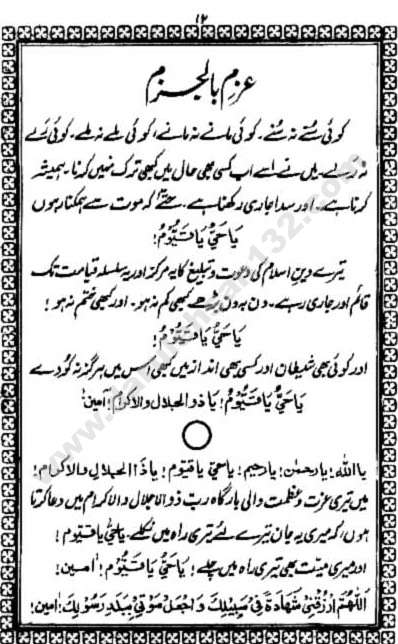 ۱۲
عزم بالجزم
کوئی سُنے نہ سُنے۔ کوئی مانے نہ مانے، کوئی ملے نہ ملے۔ کوئی رہے
نہ رہے۔ میں نے اسے اب کسی بھی حال میں کبھی ترک نہیں کرنا۔ ہمیشہ
کرنا ہے۔ اور سدا جاری رکھنا ہے۔ حتّٰے کہ موت سے ہمکنار ہوں
یَاحَیُّ یَاقَیُّوْمُ!
تیرے دین اسلام کی دعوت و تبلیغ کا یہ مرکز اور یہ سلسلہ قیامت تک
قائم اور جاری رہے۔ دن بدن بڑھے کبھی کم نہ ہو۔ اور کبھی ختم نہ ہو!
یَاحَیُّ یَاقَیُّوْمُ!
اور کوئی بھی شیطان اور کسی بھی انداز میں کبھی اس میں ہرگز نہ کُودے
یَاحَیُّ یَاقَیُّوْمُ! یَا ذوالجلال والاکرام! آمین!
یا اللہ! یا رحمٰن! یا رحیم! یا حی یا قیوم! یا ذا الجلال والاکرام!
میں تیری عزت و عظمت والی بارگاہ ربّ ذوالاجلال والاکرام میں دعا کرتا
ہوں! کہ میری یہ جان تیرے لئے تیری راہ میں نکلے۔ یاحیُّ یاقیّوم!
اور میری میّت بھی تیری راہ میں چلے! یَاحَیُّ یَاقَیُّوْمُ! اٰمین!
اَللّٰهُمَّ ارْزُقْنِیْ شَهَادَةً فِیْ سَبِیْلِكَ وَاجْعَلْ مَوْتِیْ بِبَلَدِ رَسُوْلِكَ! اٰمین!